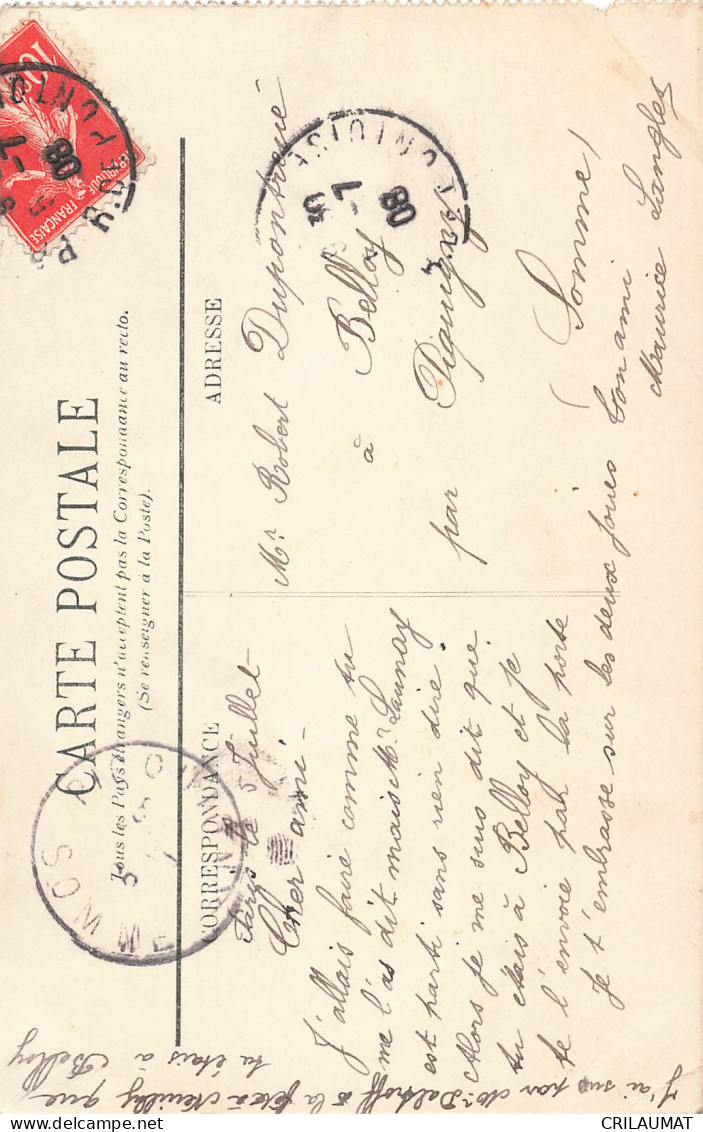 CARTE POSTALE
Tous les Pays étrangers n'acceptent pas la Correspondance au recto.
(Se renseigner à la Poste).
CORRESPONDANCE
ADRESSE
Paris le 5 Juillet
Cher ami
J'allais faire comme tu
me l'as dit mais Mr Launay
est parti sans rien dire
Alors je me suis dit que
tu étais à Belloy et je
te l'envoie par la poste
Je t'embrasse sur les deux joues
Ton ami
Maurice Langlet
J'ai su par Mr la fête à Neuilly que
tu étais à Belloy
Mr Robert Dupontrué
à Belloy
par Piquigny
(Somme)
10c
FRANÇAISE
5 -7 08
SOMME
Delcampe.net
CRILAUMAT